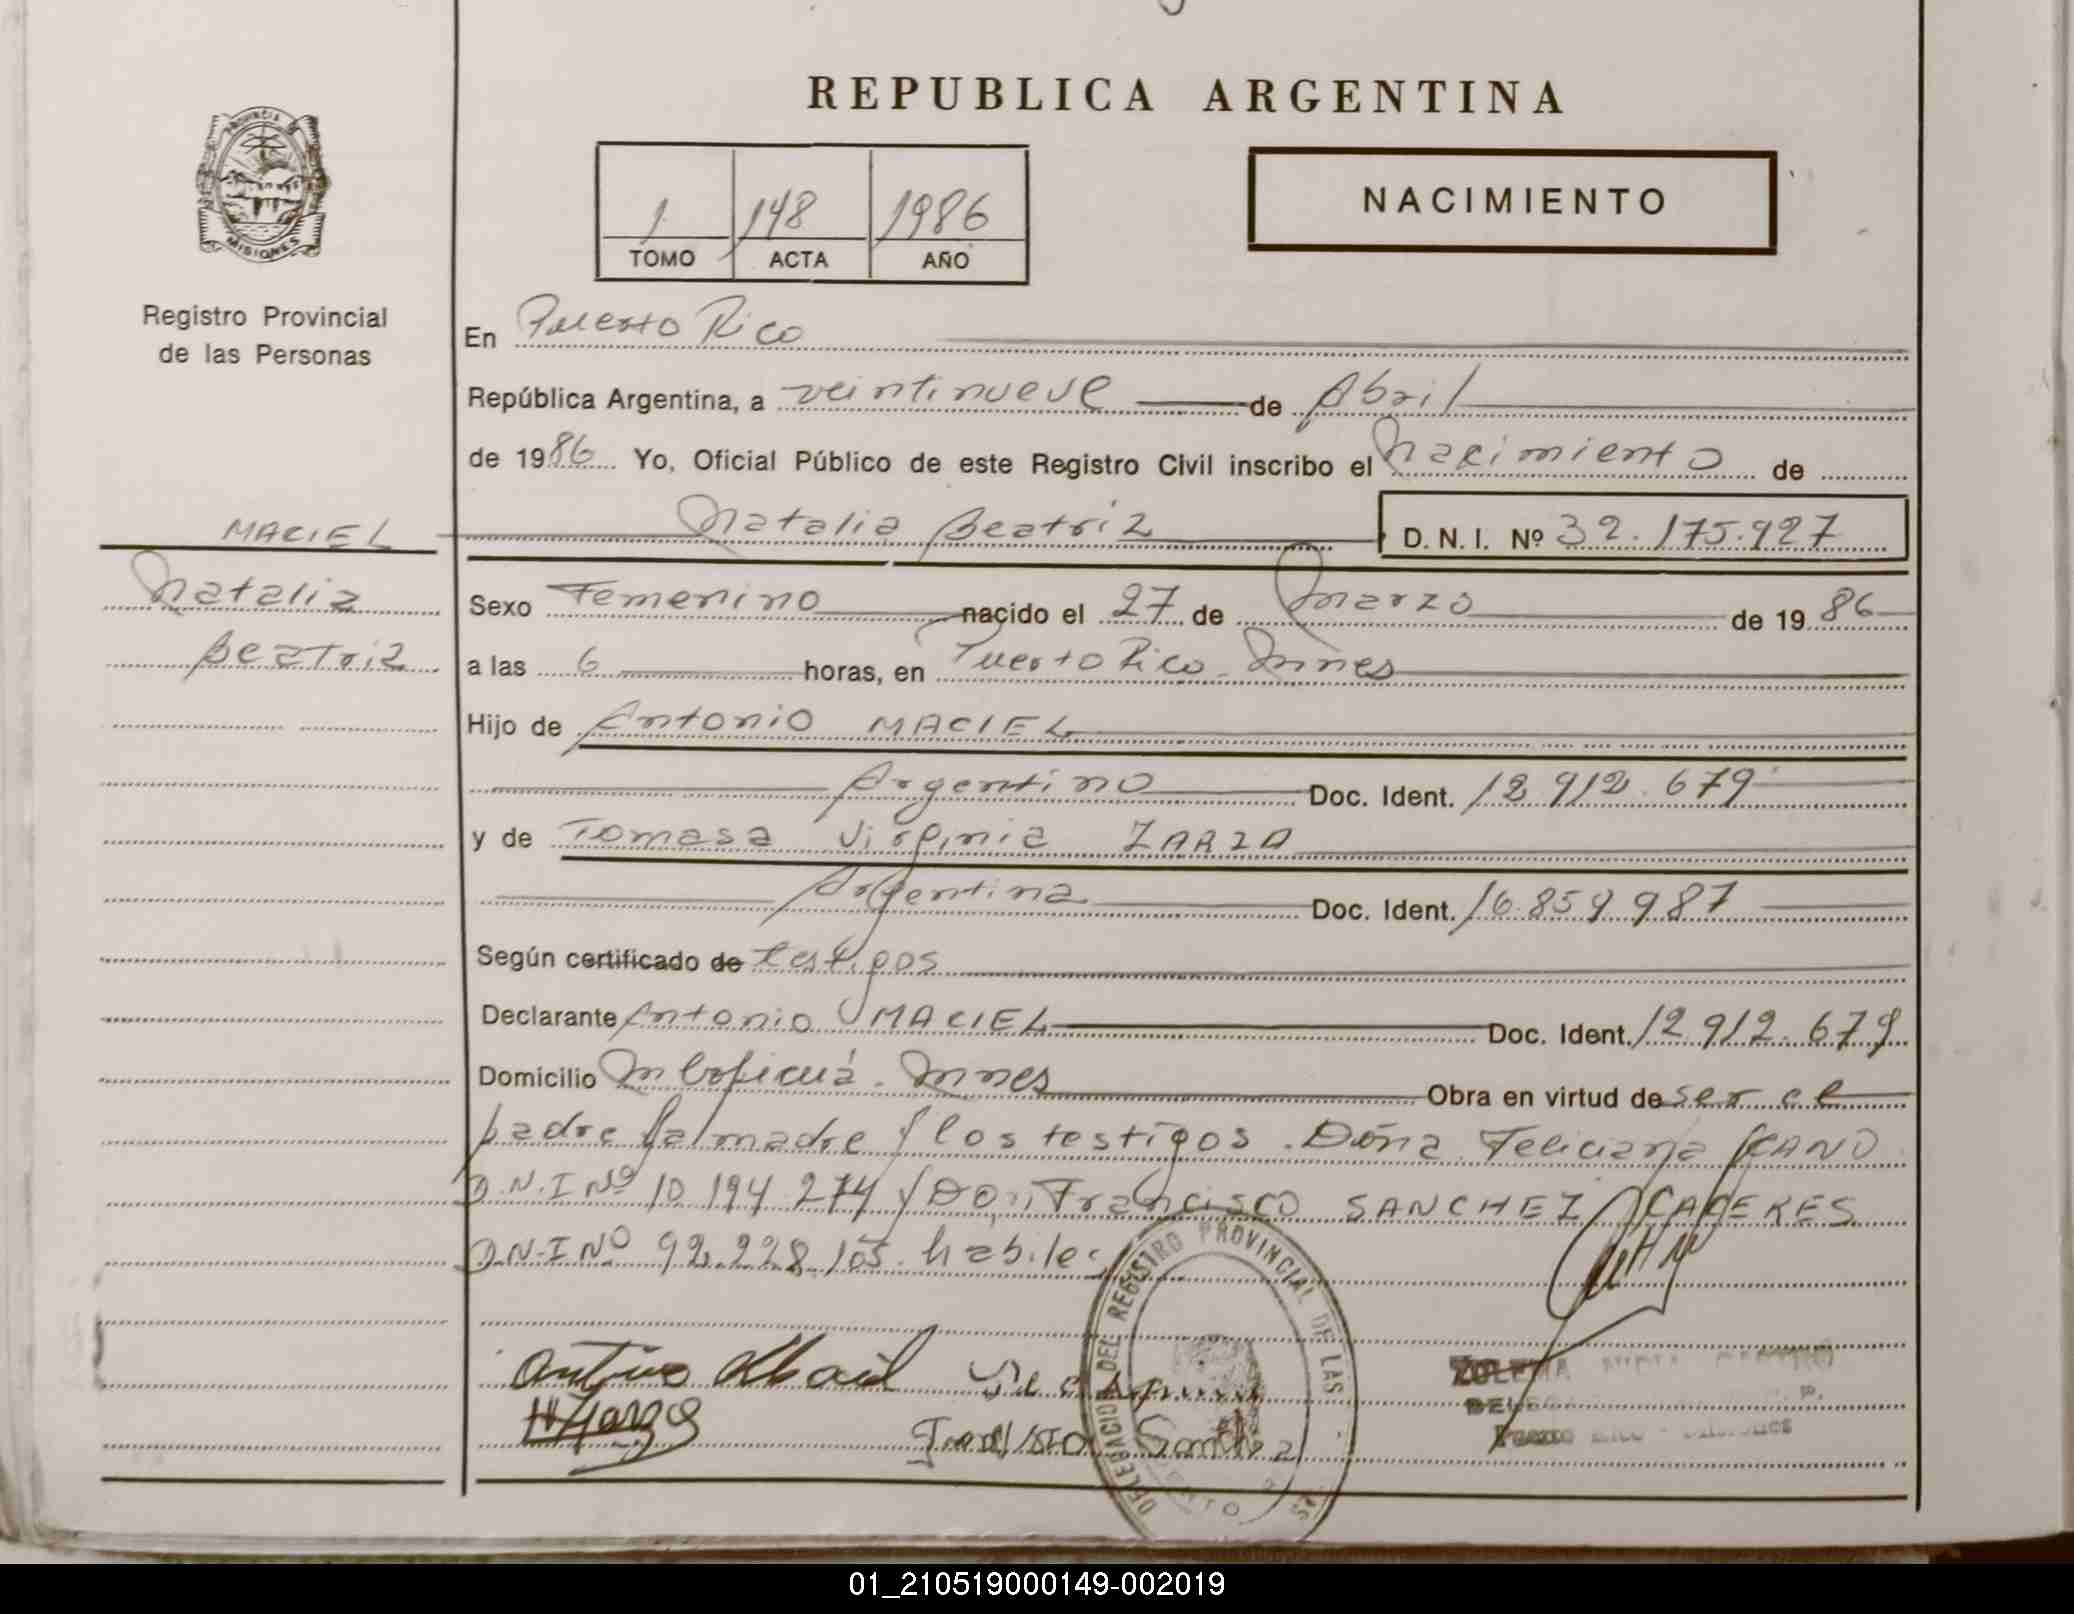 REPUBLICA ARGENTINA
PROVINCIA DE
MISIONES
Registro Provincial
de las Personas
1 148 1986
TOMO ACTA AÑO
NACIMIENTO
En Puerto Rico
República Argentina, a veintinueve de Abril
de 1986 Yo, Oficial Público de este Registro Civil inscribo el Nacimiento de
MACIEL Natalia Beatriz D. N. I. Nº 32.175.927
Natalia
Beatriz
Sexo Femenino nacido el 27 de Marzo de 19 86
a las 6 horas, en Puerto Rico - Mnes
Hijo de Antonio MACIEL
Argentino Doc. Ident. 12 912.679
y de Tomasa Virginia ZARZA
Argentina Doc. Ident. 16.859 987
Según certificado de testigos
Declarante Antonio MACIEL Doc. Ident. 12 912.679
Domicilio Mbopicuá - Mnes Obra en virtud de ser el
padre la madre y los testigos. Doña Feliciana CANO
D.N.I Nº 10 194 274 y Don Francisco SANCHEZ CACERES
D.N.I Nº 92.228.105. habiles
DELEGACION DEL REGISTRO PROVINCIAL DE LAS
Puerto Rico - Misiones
01_210519000149-002019